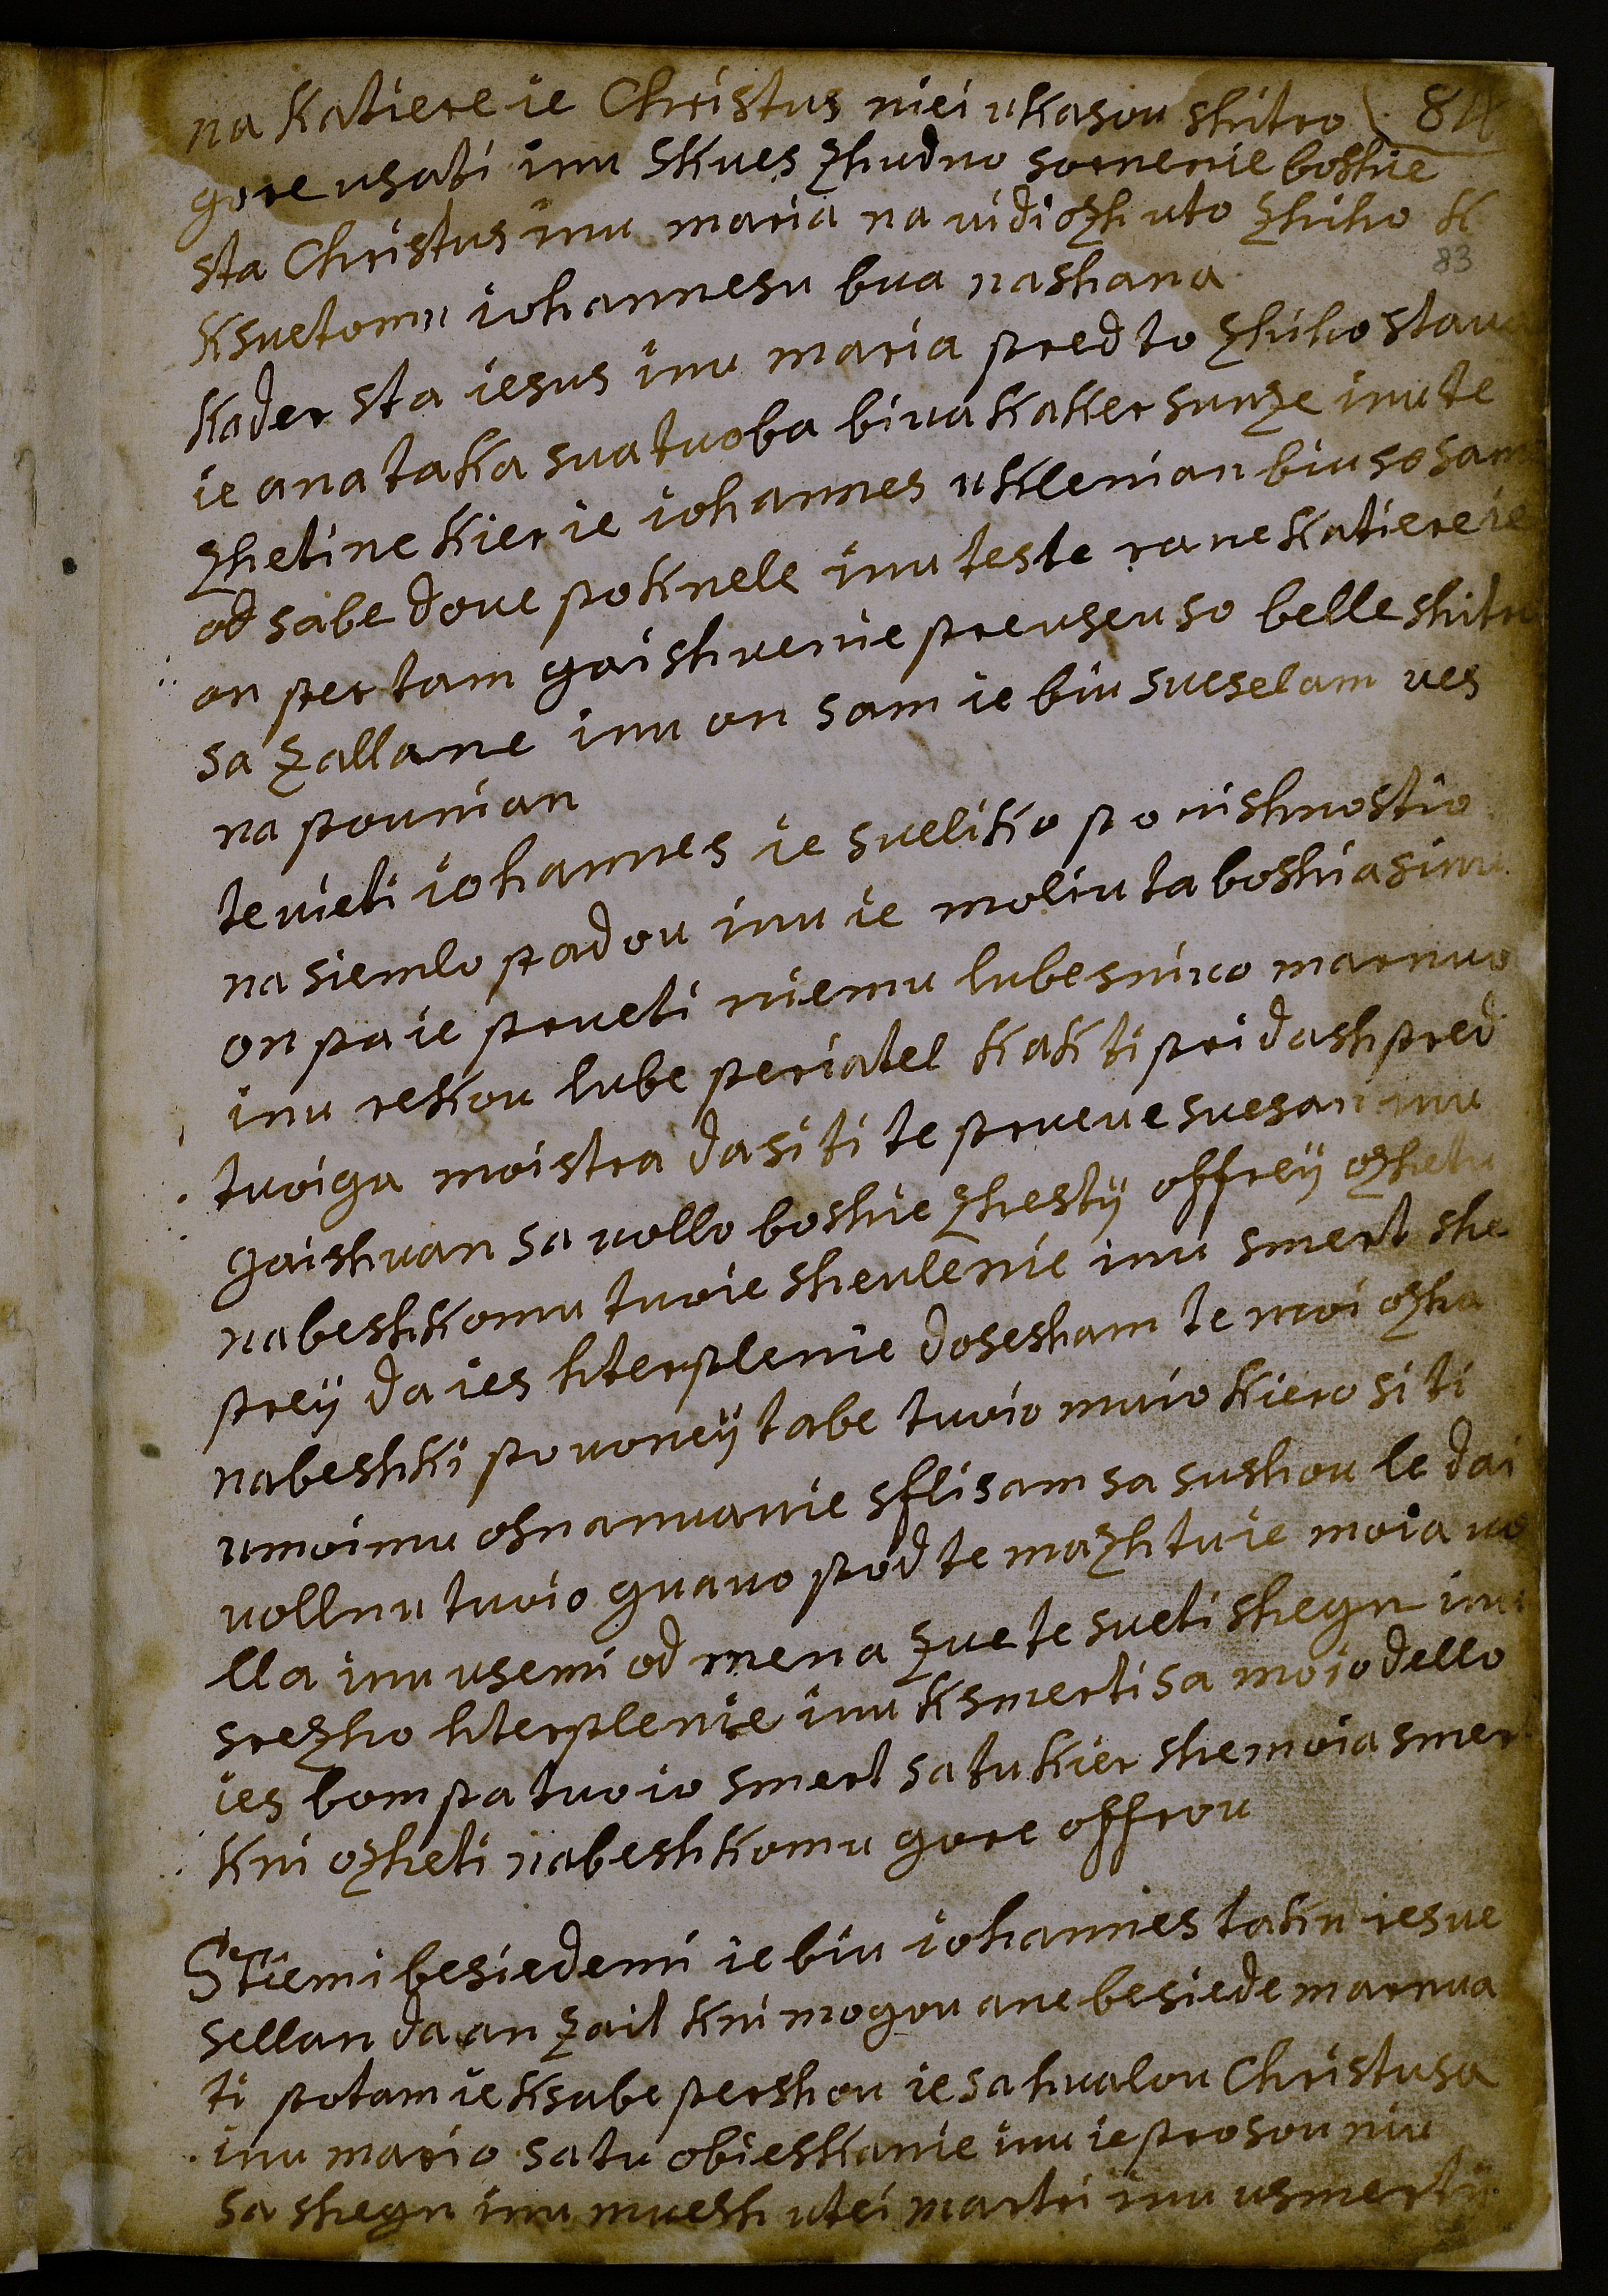 na katiere ie Christus niei ukasou shitro 84
gore usati inu skues zhudno sornenie boshie
sta Christus inu maria na uidiozh uto zhiho k
83
ksuetomu iohannesu bua nashana
kader sta iesus inu maria pred to zhiho staua
ie ana taka suatuoba biua kaker sunze inu te
zhetine kier ie iohannes ukleman biu so same
od sabe doue poknele inu teste rane katiere ie
on per tam gaishuenie preuseu so belle shitro
sa zallane inu on sam ie biu sueselam ues
na pounian
te uieti iohannes ie sueliko ponishnostio
na siemlo padou inu ie moliu ta boshia sinu
on pa ie prueti niemu lubesniuo marnuo
inu rekou lube periatel kakti pridash pred
tuoiga moistra dasi ti te prueue suesan inu
gaishuan sa uollo boshie zhestÿ offreÿ ozhetu
nabeshkomu tuoie sheulenie inu smert she
preÿ da ies hterplenie dosesham te moi ozha
nabeshki pouoneÿ tabe tuoio muio kiero si ti
umoimu osnanuanie sflisam sa sushou le dai
uollnu tuoio guauo pod te mazh tu ie moia uo
lla inu usemi od mena zue te sueti shegn inu
srezho hterplenie inu ksmerti sa moio dello
ies bom pa tuoio smert sa tu kier she moia smert
kni ozheti nabeshkomu gore offrou
Stiemi besiedemi ie biu iohannes taku resue
sellan da an zait kni mogou ane besiede marnua
ti potam ie ksabe pershou ie sahualou Christusa
inu mario satu obieshkanie inu ie prosou niu
sa shegn inu muesh utei martri inu usmertÿ